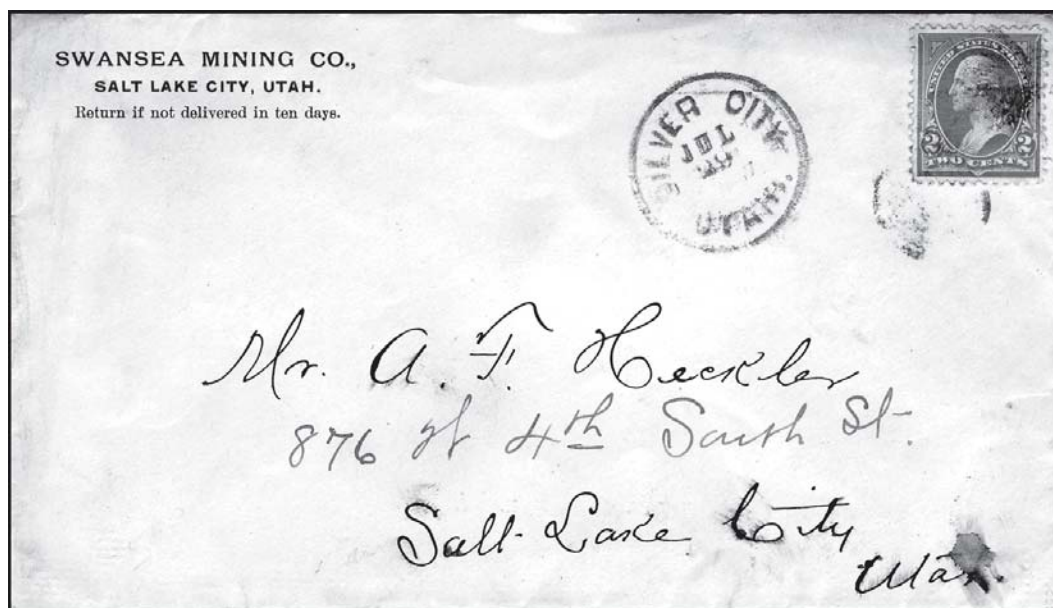 SWANSEA MINING CO.,
SALT LAKE CITY, UTAH.
Return if not delivered in ten days.
SILVER CITY
JUL
29
UTAH.
UNITED STATES
2 2
TWO CENTS
Mr. A. F. Heckler
876 W 4th South St.
Salt Lake City
Utah.